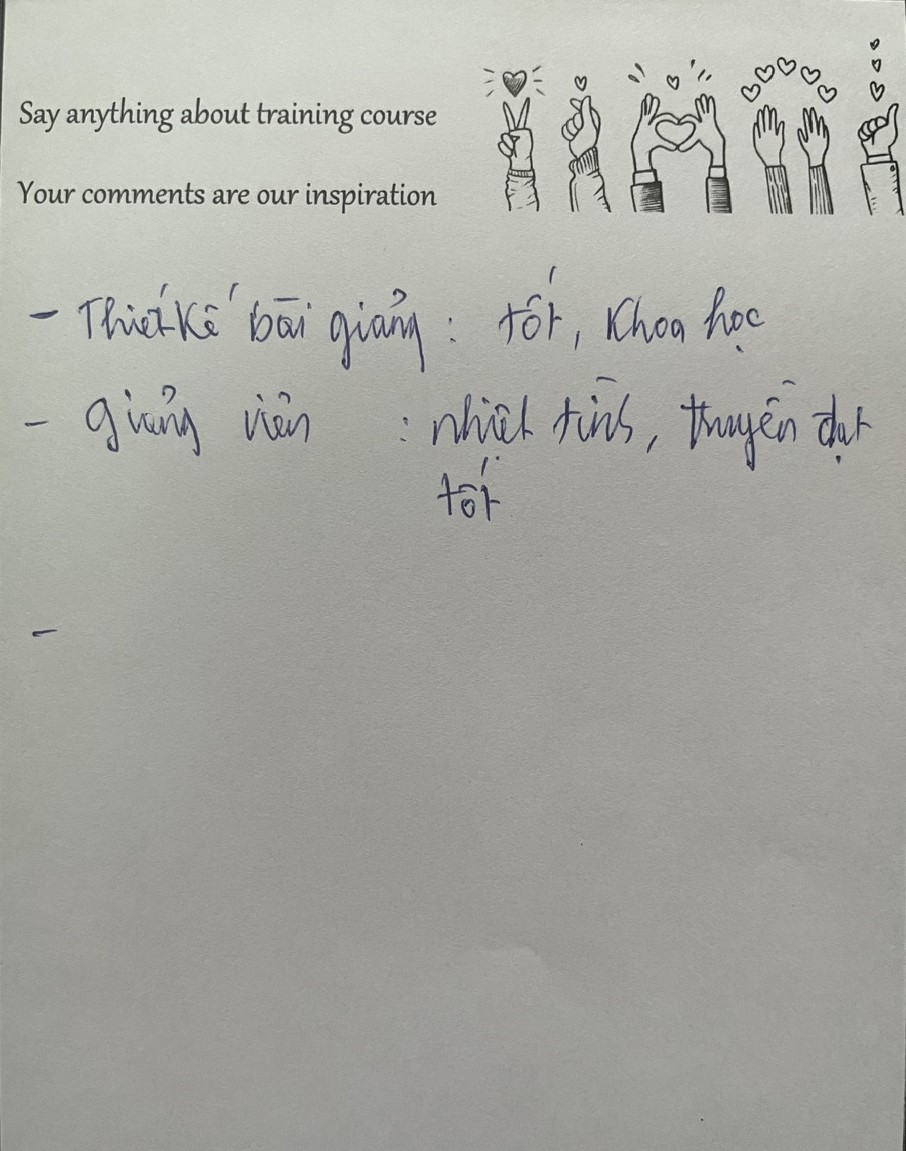 Say anything about training course
Your comments are our inspiration
- Thiết kế bài giảng : tốt, Khoa học
- Giảng viên : nhiệt tình, truyền đạt
tốt
-